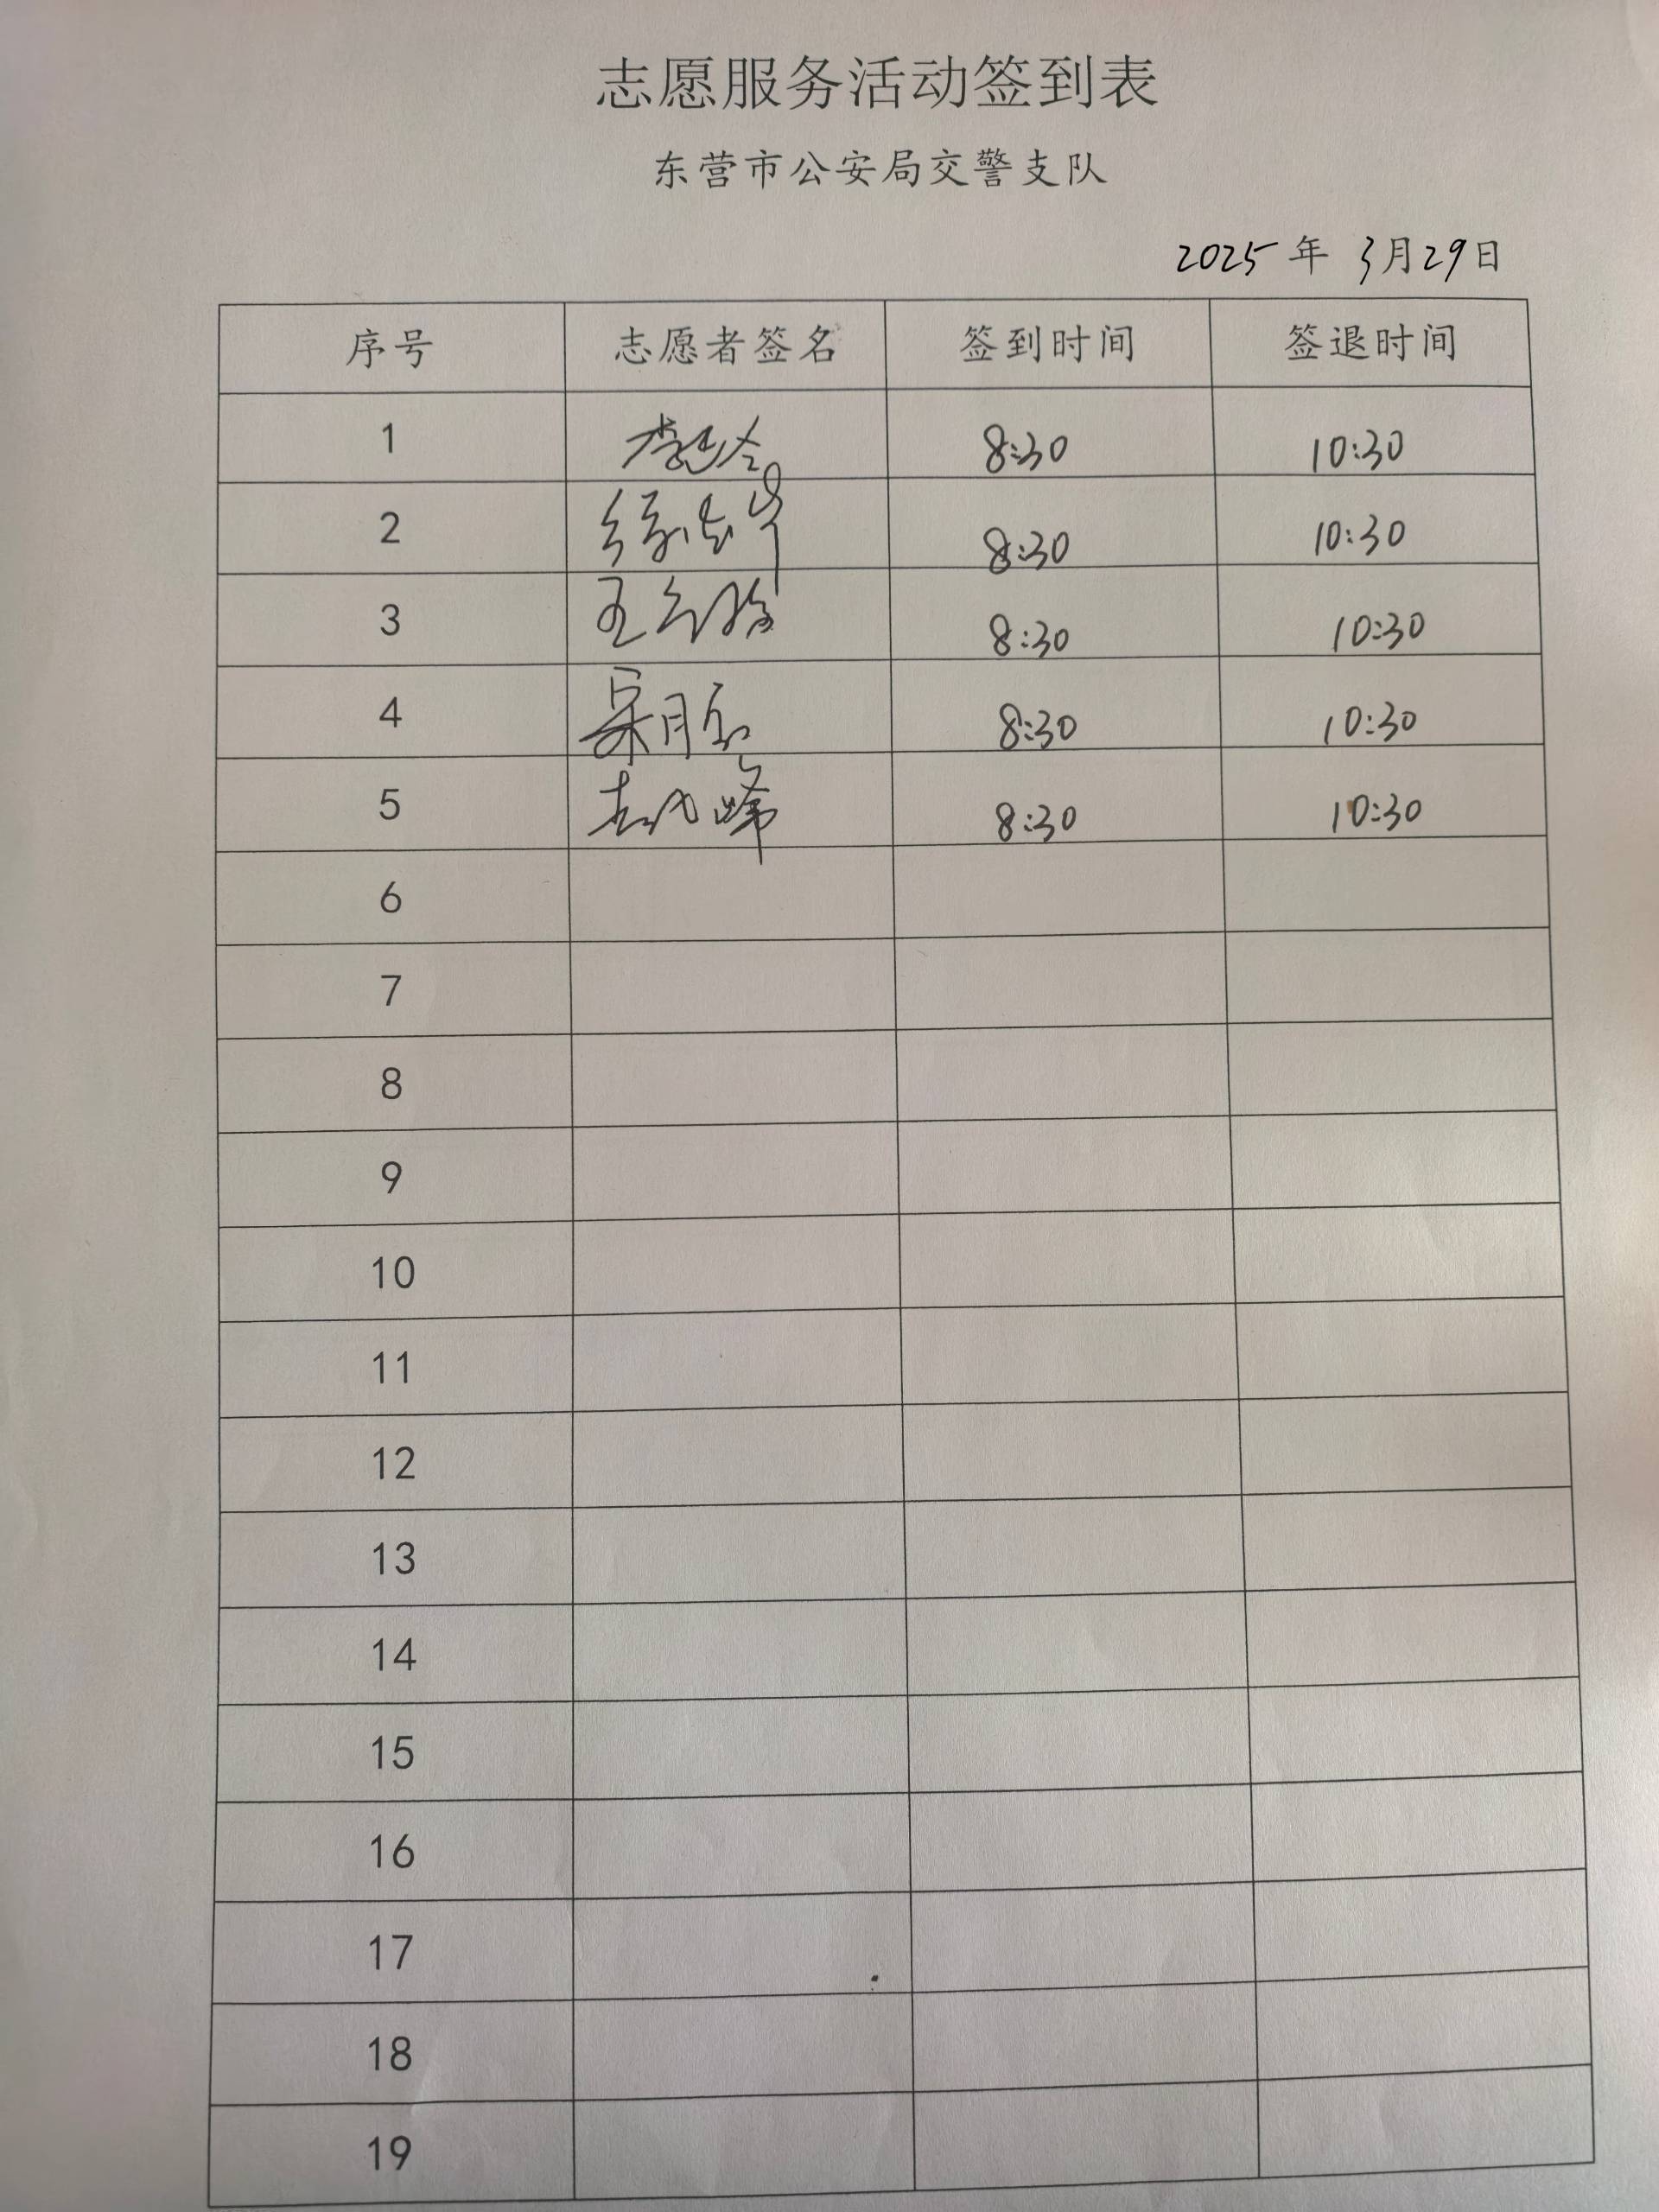 志愿服务活动签到表
东营市公安局交警支队
2025年 3月29日
序号 志愿者签名 签到时间 签退时间
1 8:30 10:30
2 8:30 10:30
3 王 8:30 10:30
4 8:30 10:30
5 8:30 10:30
6
7
8
9
10
11
12
13
14
15
16
17
18
19